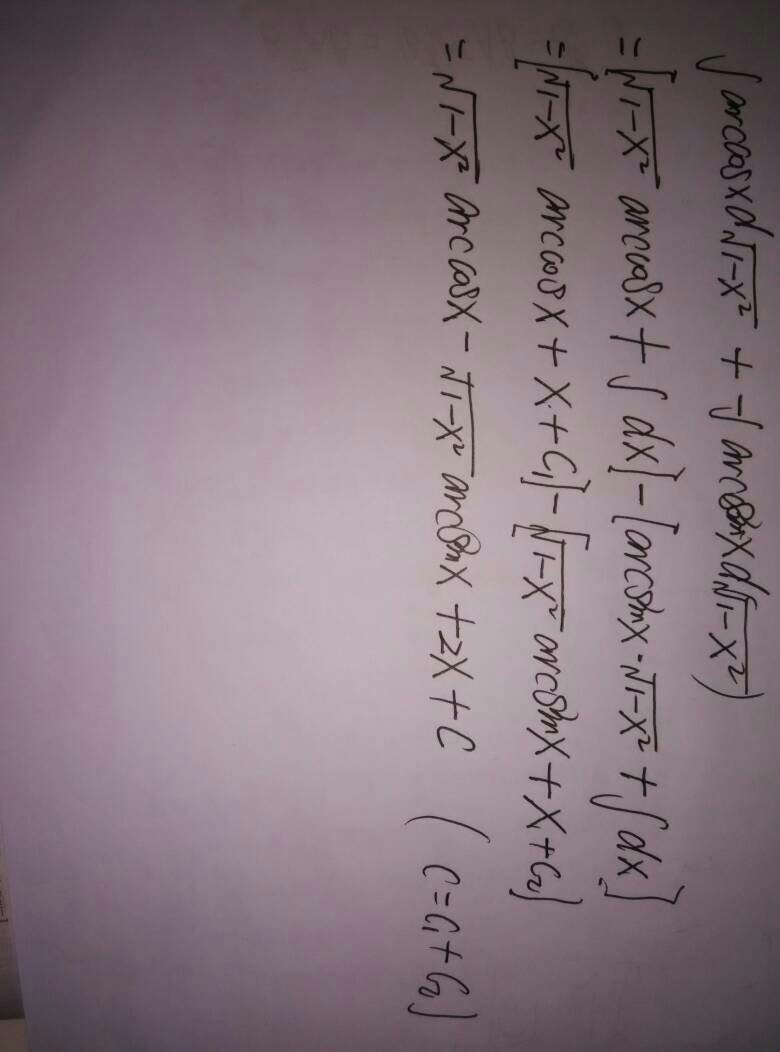 ∫ arccosx d√(1-x²) + -∫ arcsinx d√(1-x²))
= [√(1-x²) arccosx + ∫ dx] - [arcsinx · √(1-x²) + ∫ dx]
= [√(1-x²) arccosx + x + C₁] - [√(1-x²) arcsinx + x + C₂]
= √(1-x²) arccosx - √(1-x²) arcsinx + 2x + C ( C = C₁ + C₂ )